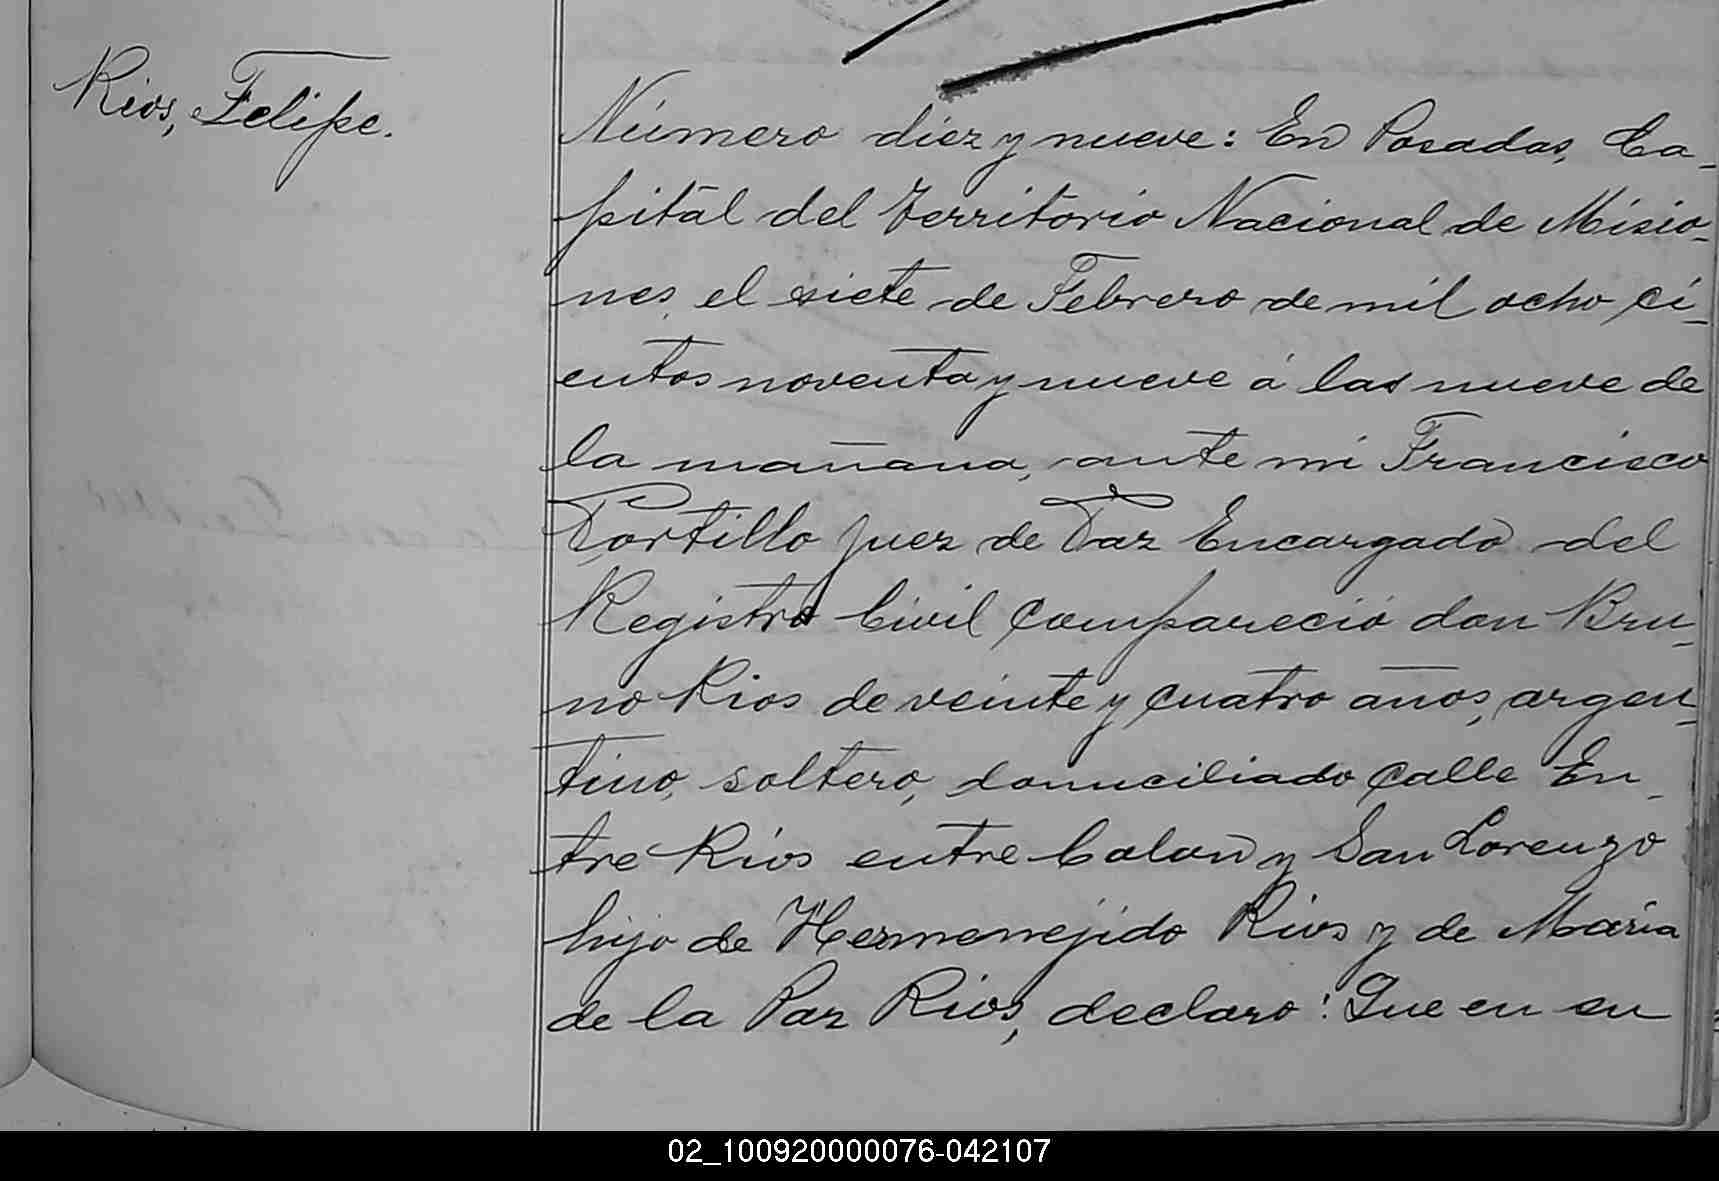 Rios, Felipe.
Número diez y nueve: En Posadas, Ca-
pital del Territorio Nacional de Misio-
nes, el siete de Febrero de mil ocho ci-
entos noventa y nueve á las nueve de
la mañana, ante mi Francisco
Portillo Juez de Paz Encargado del
Registro Civil Compareció don Bru-
no Rios de veinte y cuatro años, argen-
tino, soltero, domiciliado Calle En-
tre Rios entre Colon y San Lorenzo
hijo de Hermenejido Rios y de Maria
de la Paz Rios, declaro: Que en su
02_100920000076-042107